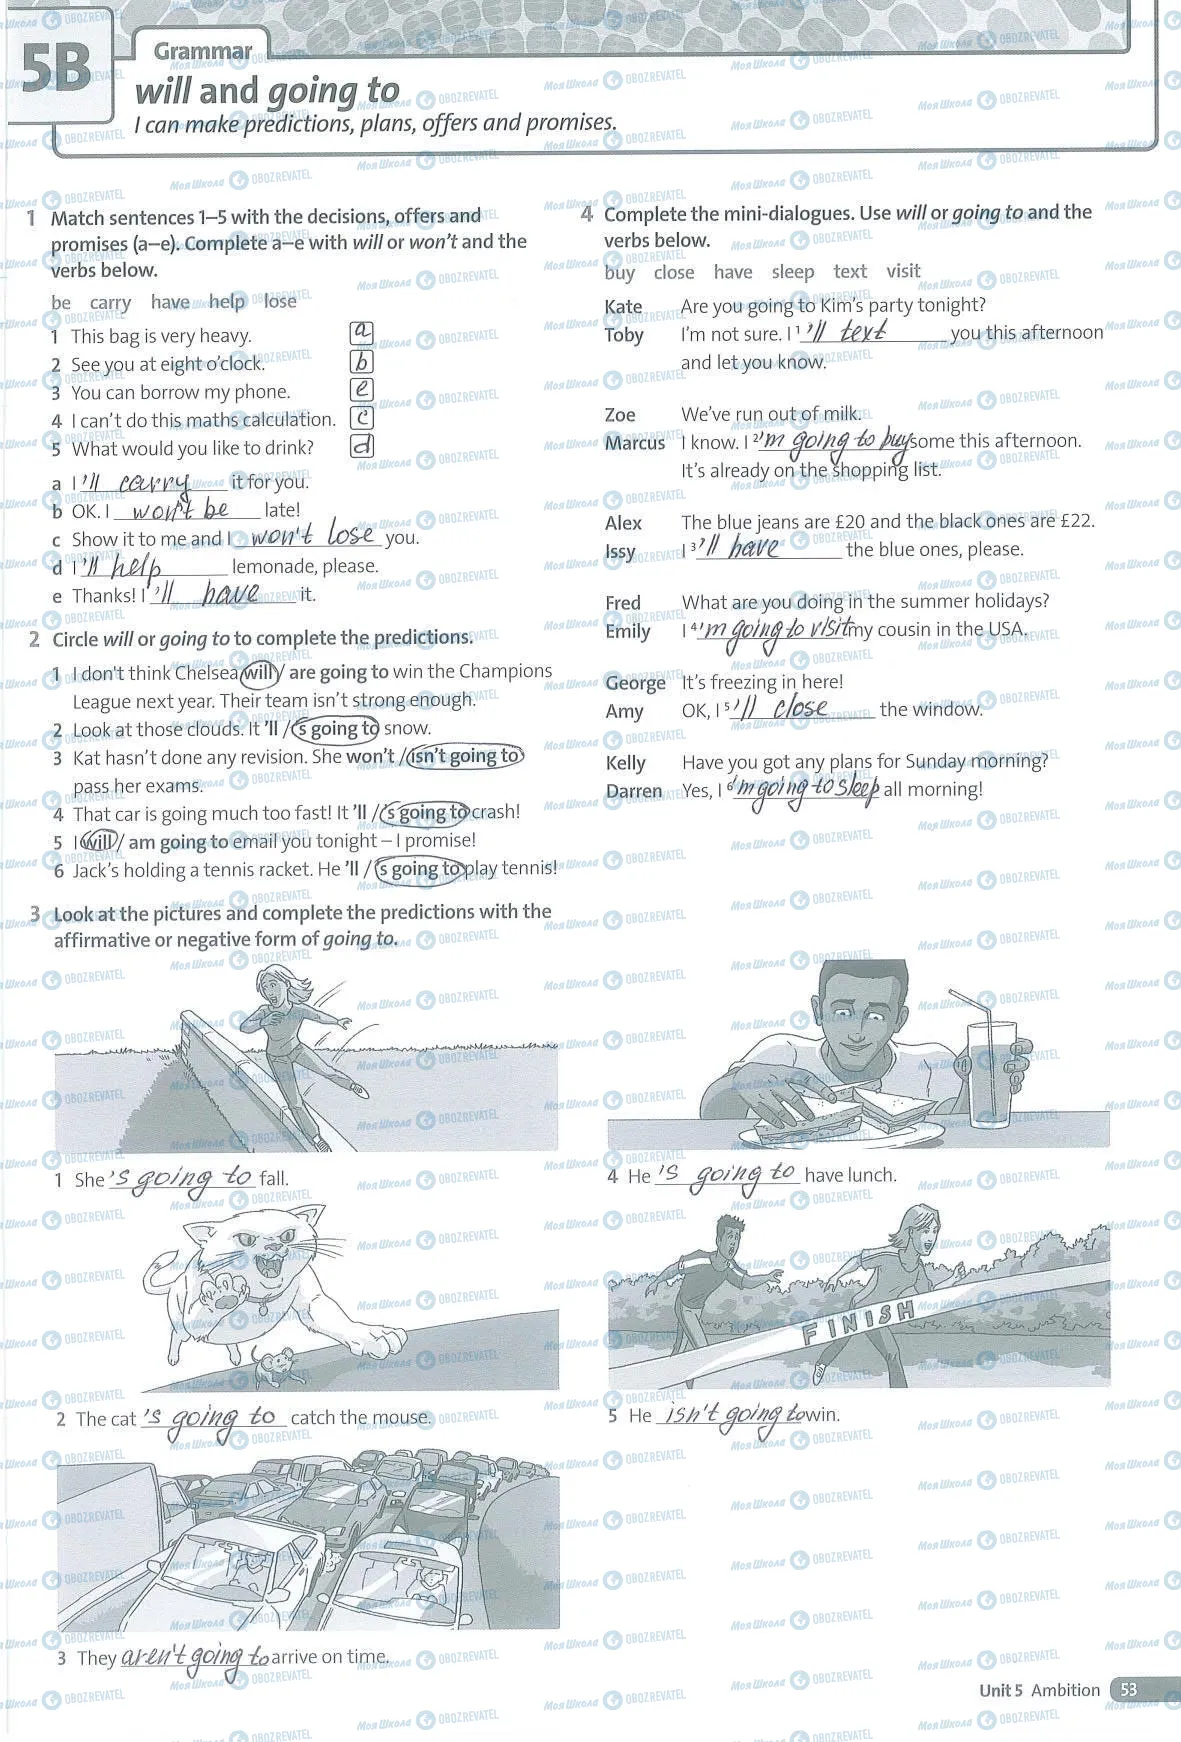 5B
Grammar
will and going to
I can make predictions, plans, offers and promises.
1 Match sentences 1–5 with the decisions, offers and
promises (a–e). Complete a–e with will or won't and the
verbs below.
be carry have help lose
1 This bag is very heavy. a
2 See you at eight o'clock. b
3 You can borrow my phone. e
4 I can't do this maths calculation. c
5 What would you like to drink? d
a I 'll carry it for you.
b OK. I won't be late!
c Show it to me and I won't lose you.
d I 'll help lemonade, please.
e Thanks! I 'll have it.
2 Circle will or going to to complete the predictions.
1 I don't think Chelsea will / are going to win the Champions
League next year. Their team isn't strong enough.
2 Look at those clouds. It 'll / 's going to snow.
3 Kat hasn't done any revision. She won't / isn't going to
pass her exams.
4 That car is going much too fast! It 'll / 's going to crash!
5 I will / am going to email you tonight – I promise!
6 Jack's holding a tennis racket. He 'll / 's going to play tennis!
3 Look at the pictures and complete the predictions with the
affirmative or negative form of going to.
1 She 's going to fall.
2 The cat 's going to catch the mouse.
3 They aren't going to arrive on time.
4 Complete the mini-dialogues. Use will or going to and the
verbs below.
buy close have sleep text visit
Kate Are you going to Kim's party tonight?
Toby I'm not sure. I 1 'll text you this afternoon
and let you know.
Zoe We've run out of milk.
Marcus I know. I 2 'm going to buy some this afternoon.
It's already on the shopping list.
Alex The blue jeans are £20 and the black ones are £22.
Issy I 3 'll have the blue ones, please.
Fred What are you doing in the summer holidays?
Emily I 4 'm going to visit my cousin in the USA.
George It's freezing in here!
Amy OK, I 5 'll close the window.
Kelly Have you got any plans for Sunday morning?
Darren Yes, I 6 'm going to sleep all morning!
4 He 's going to have lunch.
FINISH
5 He isn't going to win.
Unit 5 Ambition 53
Моя Школа OBOZREVATEL